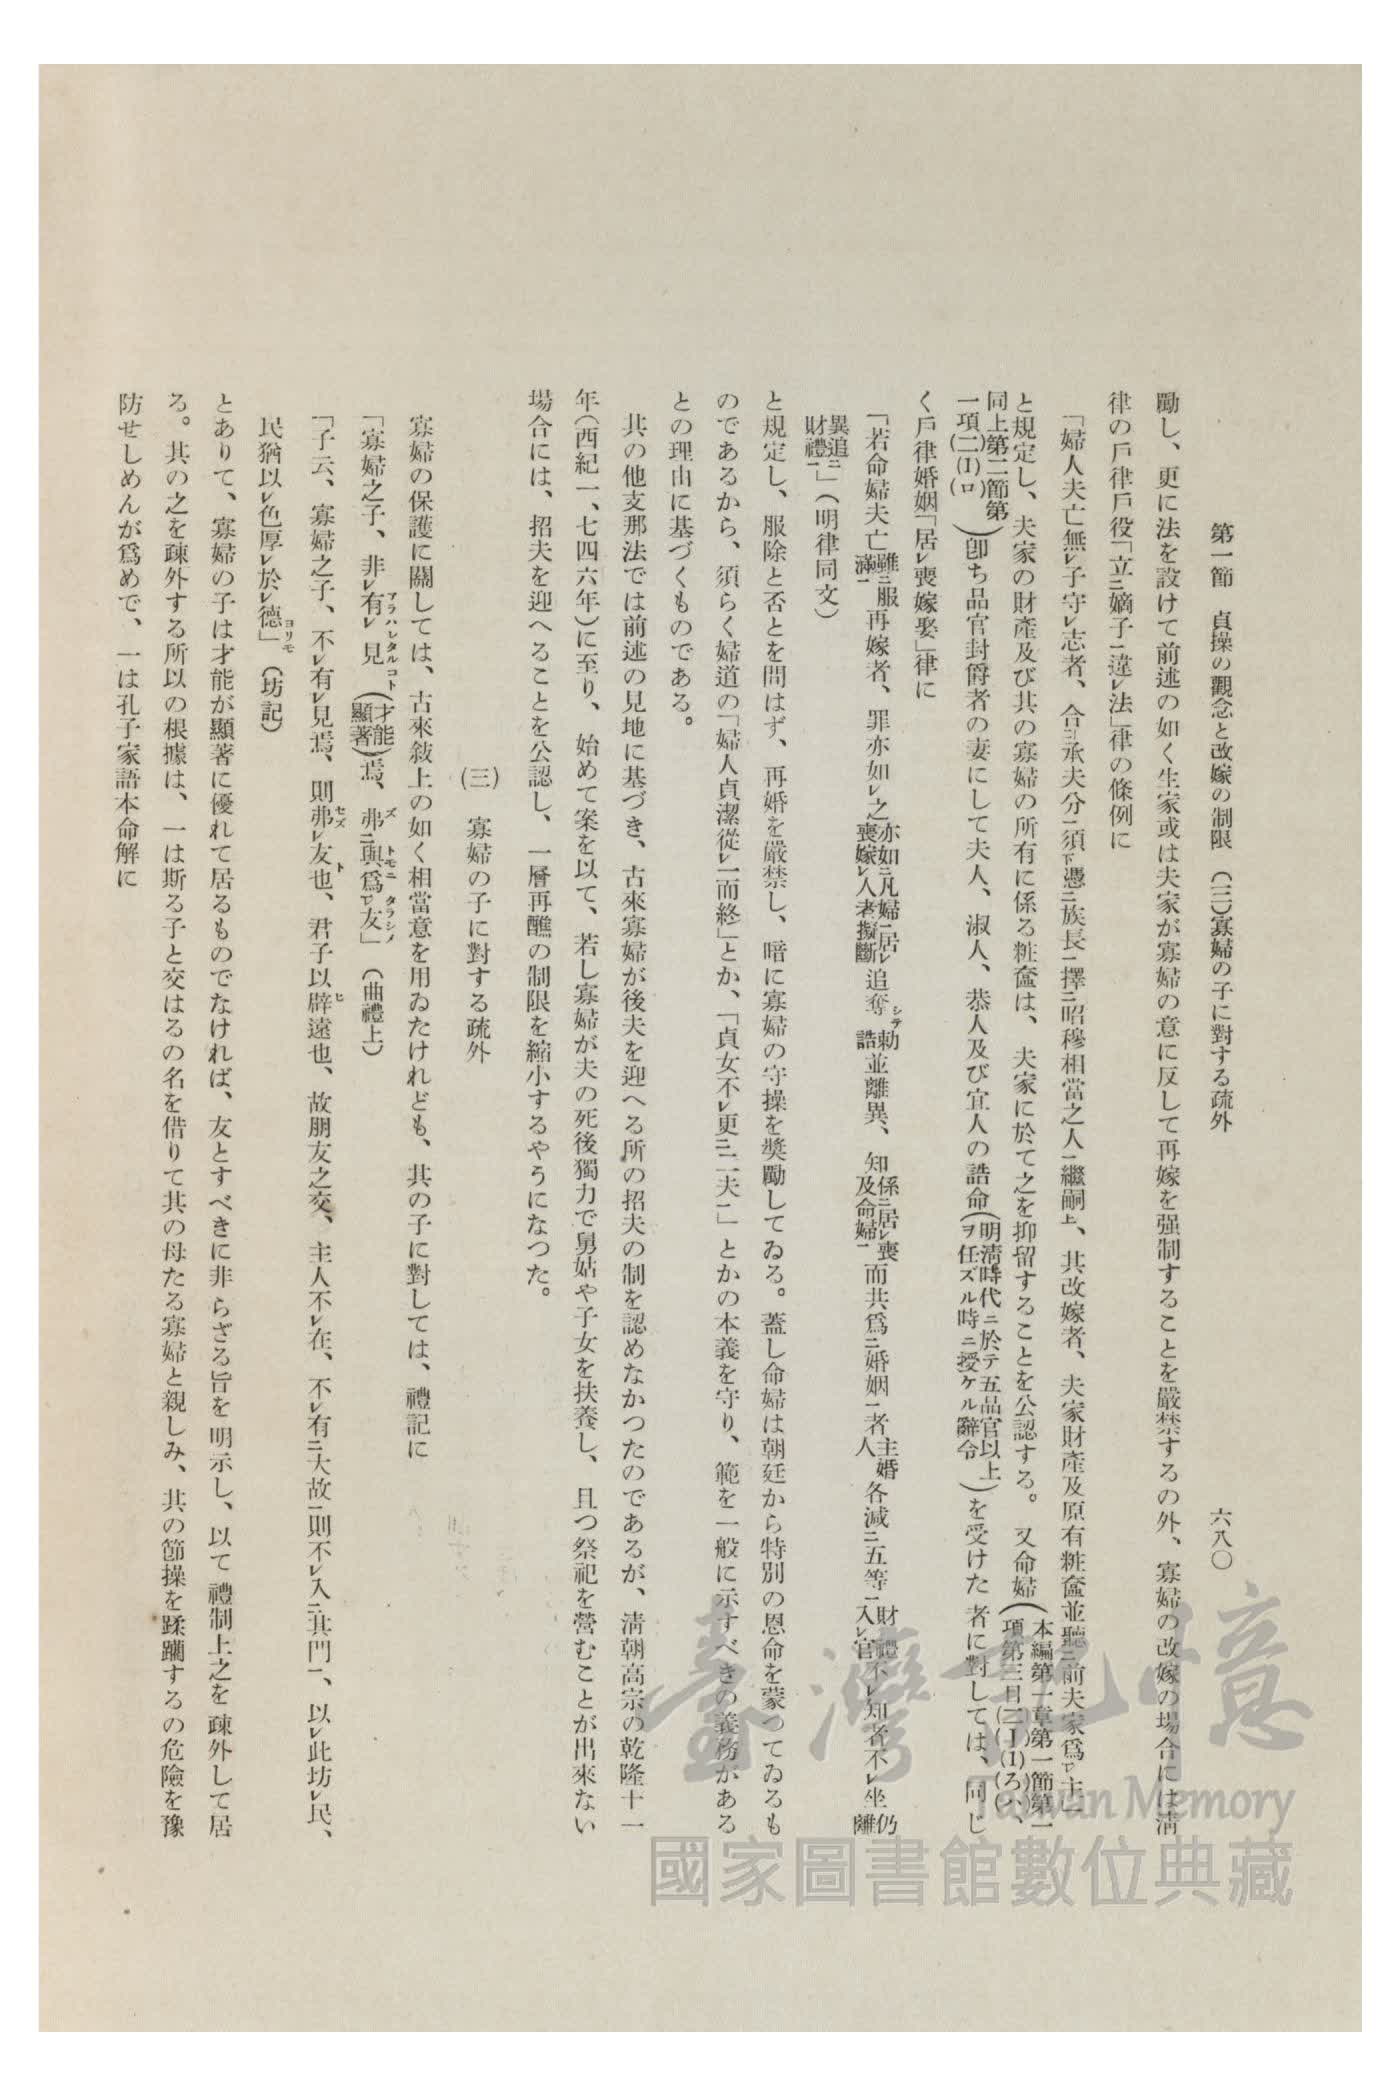 第一節　貞操の觀念と改嫁の制限　(三)寡婦の子に對する疏外　六八〇
勵し、更に法を設けて前述の如く生家或は夫家が寡婦の意に反して再嫁を强制することを嚴禁するの外、寡婦の改嫁の場合には淸
律の戶律戶役「立ニ嫡子一違レ法」律の條例に
「婦人夫亡無レ子守レ志者、合三承夫分一須下憑ニ族長一擇ニ昭穆相當之人一繼嗣上、其改嫁者、夫家財產及原有粧奩並聽ニ前夫家爲一レ主」
と規定し、夫家の財產及び其の寡婦の所有に係る粧奩は、夫家に於て之を抑留することを公認する。又命婦(本編第一章第一節第一項第三目(二)(1)(ろ)(ハ)、
同上第二節第一項(二)(1)(ロ))卽ち品官封爵者の妻にして夫人、淑人、恭人及び宜人の誥命(明淸時代ニ於テ五品官以上ヲ任ズル時ニ授ケル辭令)を受けた者に對しては、同じ
く戶律婚姻「居レ喪嫁娶」律に
「若命婦夫亡雖ニ服滿一再嫁者、罪亦如レ之亦如ニ凡婦一居レ喪嫁レ人者擬斷追奪シテ勅誥並離異、知係ニ居レ喪及命婦一而共爲ニ婚姻一者主婚人各減ニ五等一財禮入レ官不レ知者不レ坐仍離
異追ニ財禮一」(明律同文)
と規定し、服除と否とを問はず、再婚を嚴禁し、暗に寡婦の守操を奬勵してゐる。蓋し命婦は朝廷から特別の恩命を蒙つてゐるも
のであるから、須らく婦道の「婦人貞潔從レ一而終」とか、「貞女不レ更ニ二夫一」とかの本義を守り、範を一般に示すべきの義務がある
との理由に基づくものである。
其の他支那法では前述の見地に基づき、古來寡婦が後夫を迎へる所の招夫の制を認めなかつたのであるが、淸朝高宗の乾隆十一
年(西紀一、七四六年)に至り、始めて案を以て、若し寡婦が夫の死後獨力で舅姑や子女を扶養し、且つ祭祀を營むことが出來ない
場合には、招夫を迎へることを公認し、一層再醮の制限を縮小するやうになつた。
(三)　寡婦の子に對する疏外
寡婦の保護に關しては、古來敍上の如く相當意を用ゐたけれども、其の子に對しては、禮記に
「寡婦之子、非レ有レ見アラハレタルコト(才能顯著)焉、弗ズニ與トモニ爲タラシノ一レ友」(曲禮上)
「子云、寡婦之子、不レ有レ見焉、則弗セズレ友ト也、君子以辟ヒ遠也、故朋友之交、主人不レ在、不レ有ニ大故一則不レ入ニ其門一、以レ此坊レ民、
民猶以レ色厚レ於レ德ヨリモ」(坊記)
とありて、寡婦の子は才能が顯著に優れて居るものでなければ、友とすべきに非らざる旨を明示し、以て禮制上之を疎外して居
る。其の之を疎外する所以の根據は、一は斯る子と交はるの名を借りて其の母たる寡婦と親しみ、其の節操を蹂躙するの危險を豫
防せしめんが爲めで、一は孔子家語本命解に
臺灣記憶
Taiwan Memory
國家圖書館數位典藏